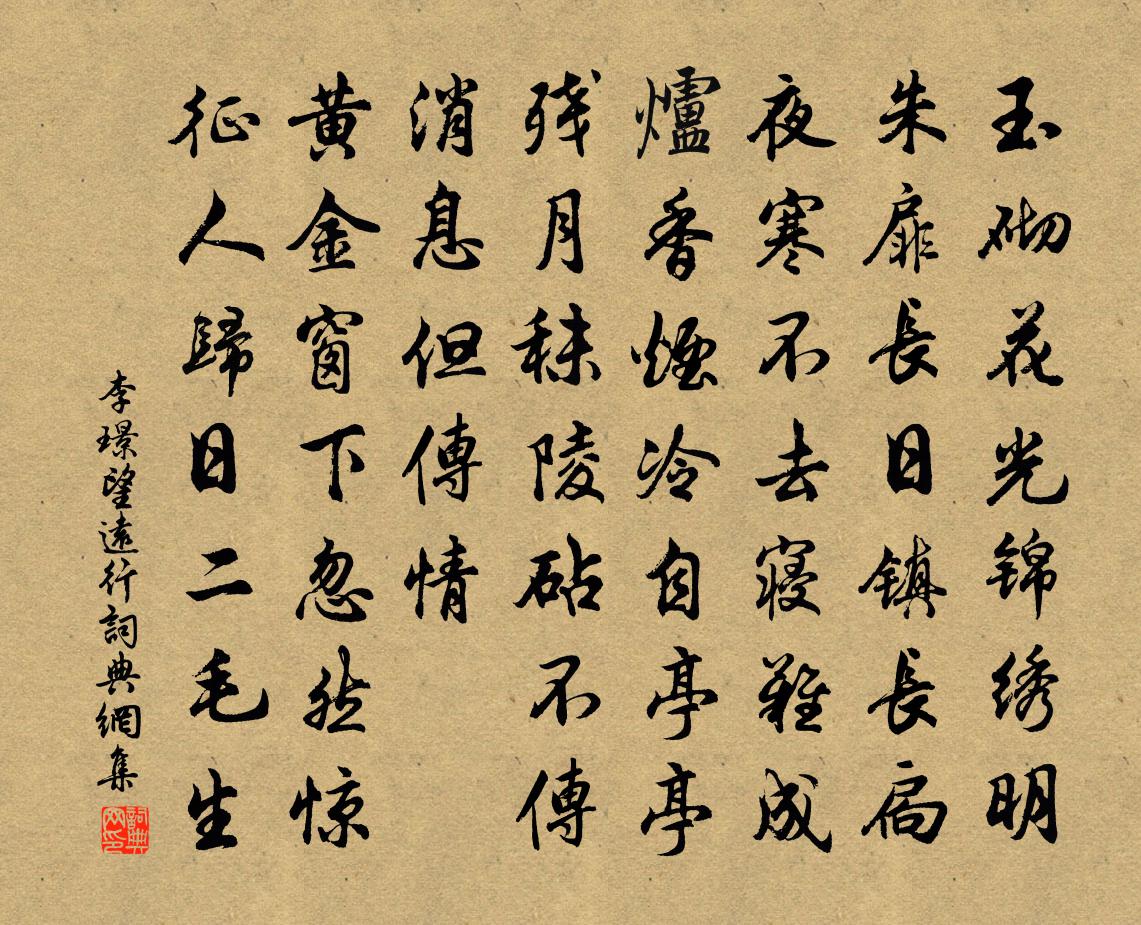 玉砌花光锦绣明
朱扉長日鎮長扃
夜寒不去寝難成
爐香煙冷自亭亭
残月秣陵砧不傳
消息但傳情
黄金窗下忽然惊
征人歸日二毛生
李璟望遠行詞典網集
詞典网印